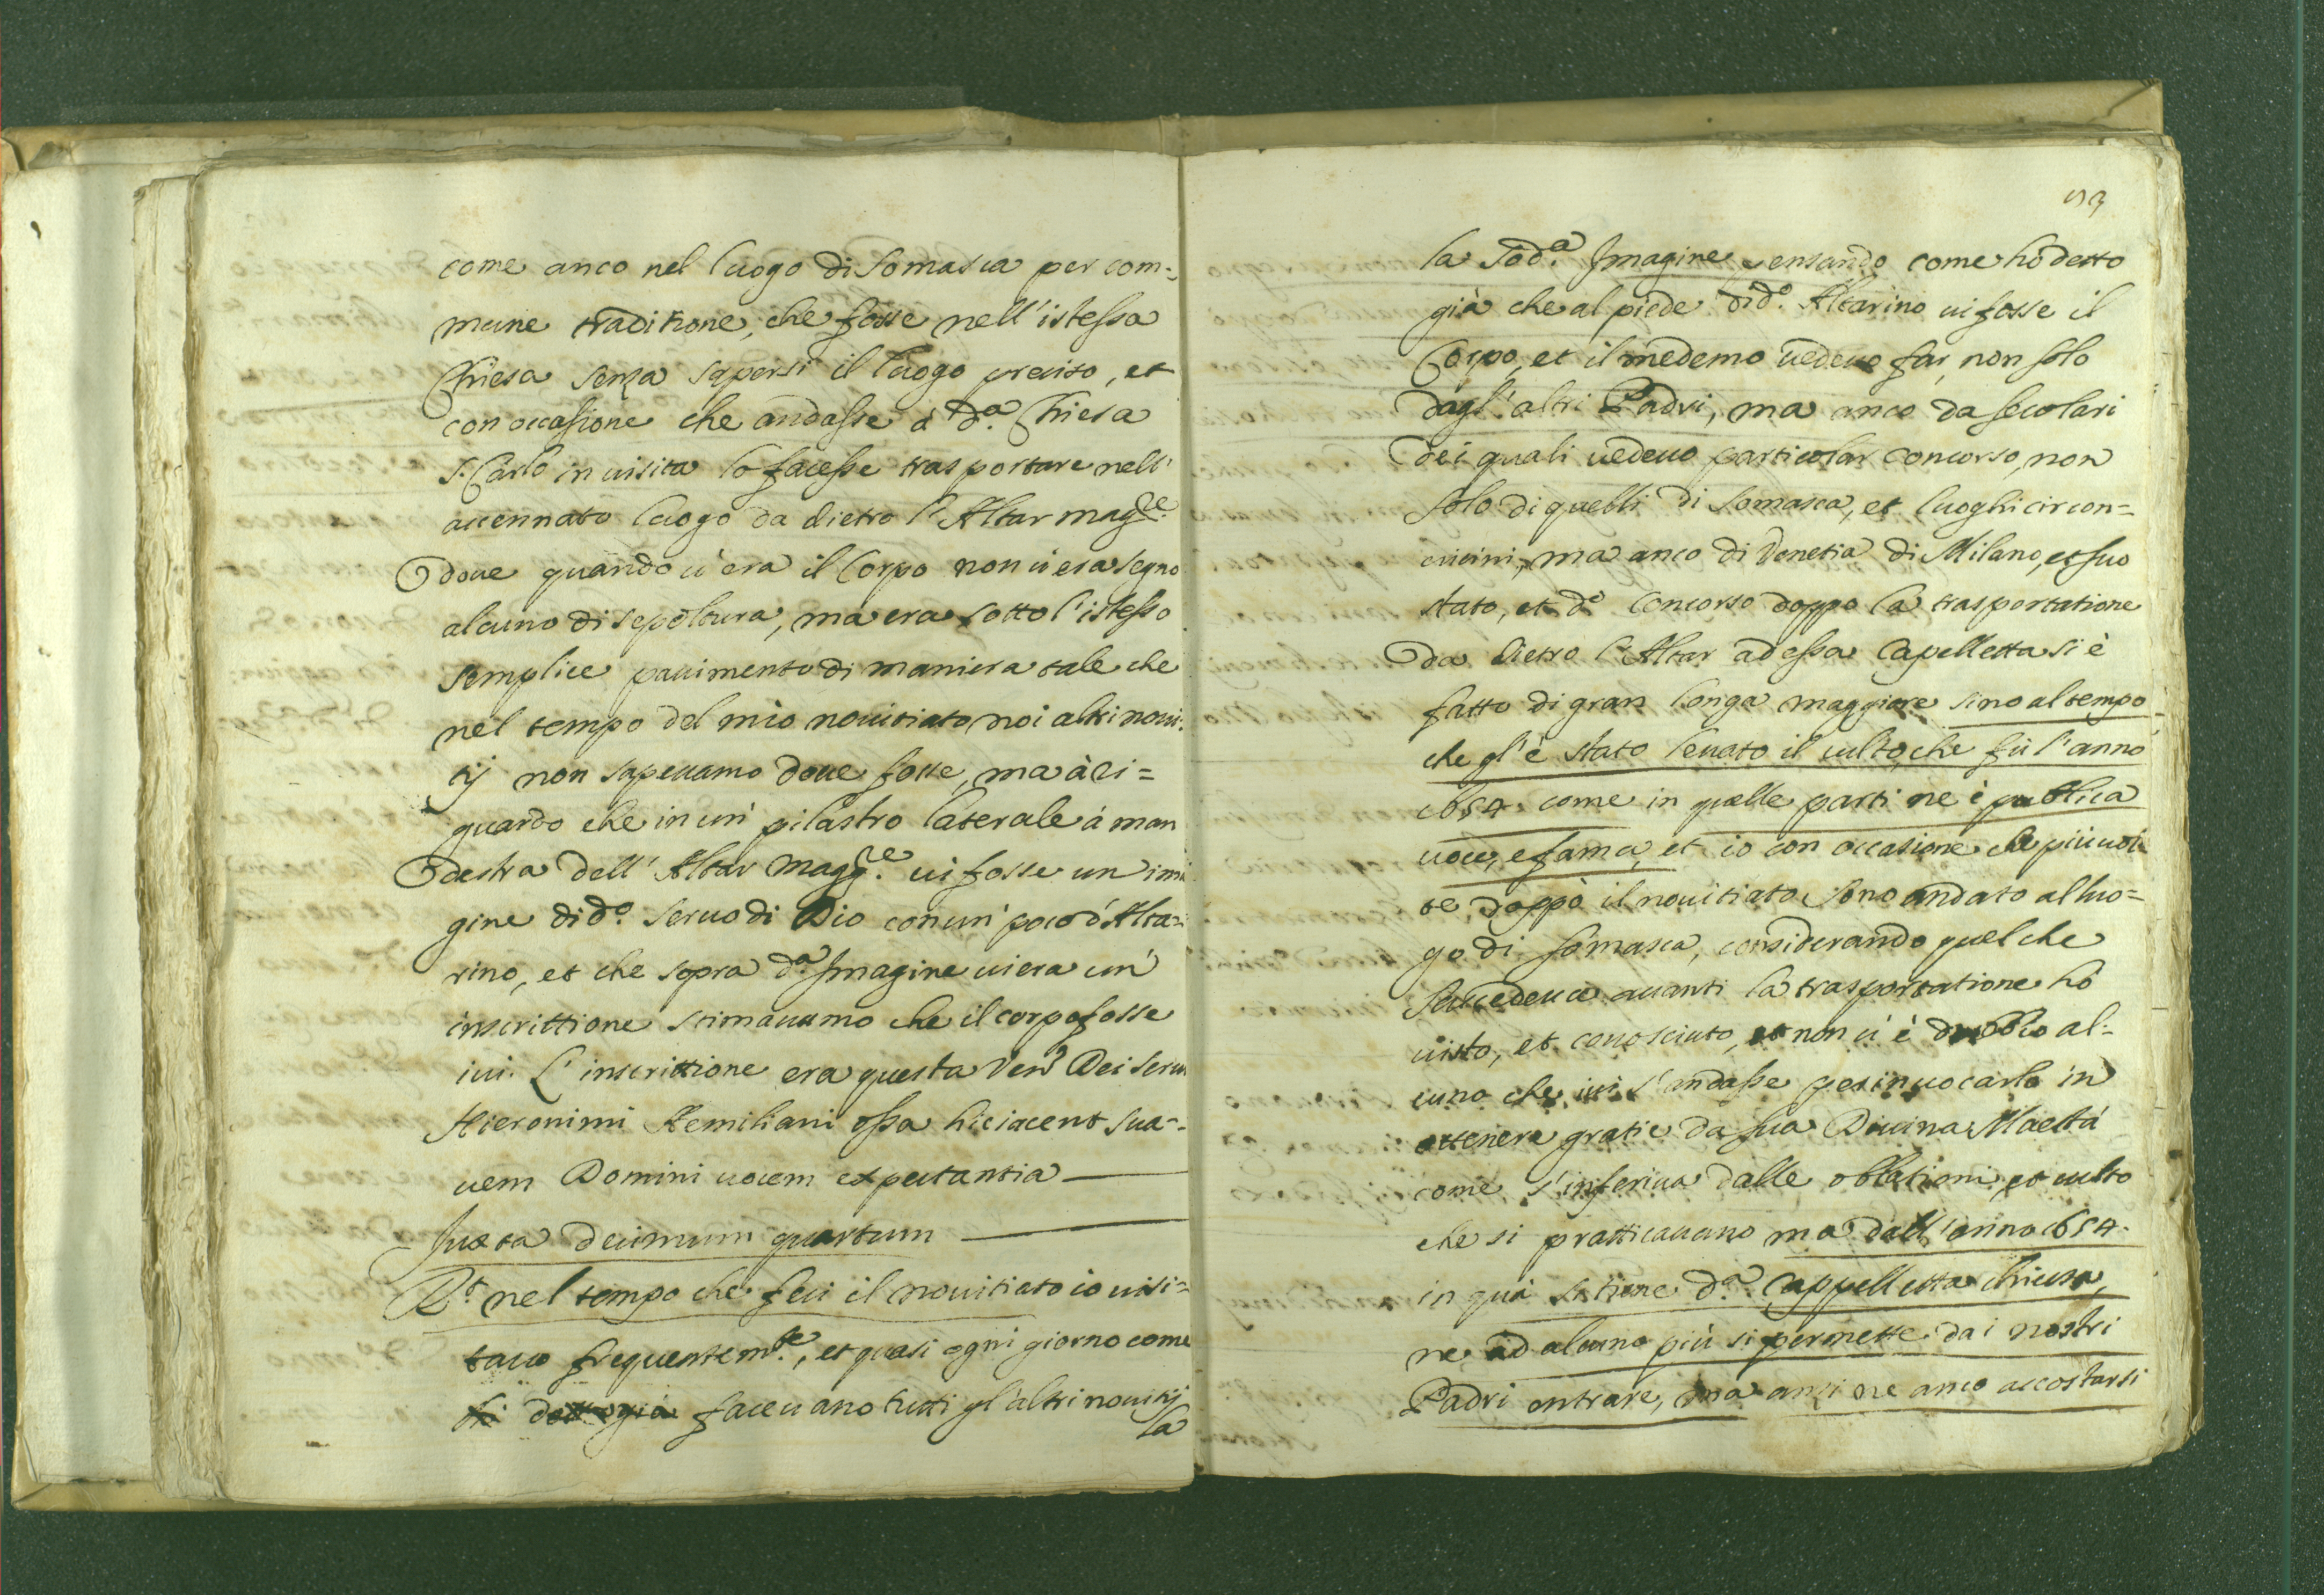 come anco nel luogo di Somasca per com=
mune traditione, che fosse nell'istessa
Chiesa senza sapersi il luogo preciso, et
con occasione che andasse à d.ª Chiesa
S. Carlo in visita lo facesse trasportare nell'
accennato luogo da dietro l'Altar magre.
doue quando ui era il Corpo non ui era segno
alcuno di sepoltura, ma era sotto l'istesso
semplice pauimento di maniera tale che
nel tempo del mio nouitiato noi altri noui=
tij non sapeuamo doue fosse, ma à ri=
guardo che in un' pilastro laterale á man
destra dell'Altar magg.re ui fosse un imà
gine di d.º Seruo di Dio con un' poco d'Alta=
rino, et che sopra d.ª Imagine ui era un'
inscrittione stimauamo che il corpo fosse
iui. L'inscrittione era questa Ven. Dei serui
Hieronimi Aemiliani ossa hic iacent sua=
uem Domini uocem expectantia
Juxta decimum quartum
R.t nel tempo che feci il nouitiato io uisi=
tauo frequentem.te, et quasi ogni giorno come
faceuano tutti gl'altri nouitij
la
53
la sod.ª Imagine pensando come hò detto
già che al piede di d.º Altarino ui fosse il
Corpo, et il medemo uedeuo far, non solo
dagl'altri Padri, ma anco da secolari
dei quali uedeuo particolar concorso, non
solo di quelli di Somasca, et luoghi circon=
uicini, ma anco di Venetia, di Milano, et suo
stato, et d.º concorso doppo la trasportatione
da dietro l'Altar ad essa Capelletta si è
fatto di gran longa maggiore sino al tempo
che gl'è stato leuato il culto, che fù l'anno
1654. come in quelle parti ne è publica
uoce, e fama, et io con occasione che più uol
te doppò il nouitiato sono andato al luo=
go di Somasca, considerando quel che
succedeua auanti la trasportatione hò
uisto, et conosciuto, et non ui è dubbio al=
cuno che iui s'andasse per inuocarlo in
ottenere gratie da sua Diuina Maestá
come s'inferiua dalle oblationi, et culto
che si pratticauano ma dall'anno 1654.
in quà si tiene d.ª Cappelletta chiusa,
ne ad alcuno più si permette dai nostri
Padri entrare, ma anzi ne anco accostarsi